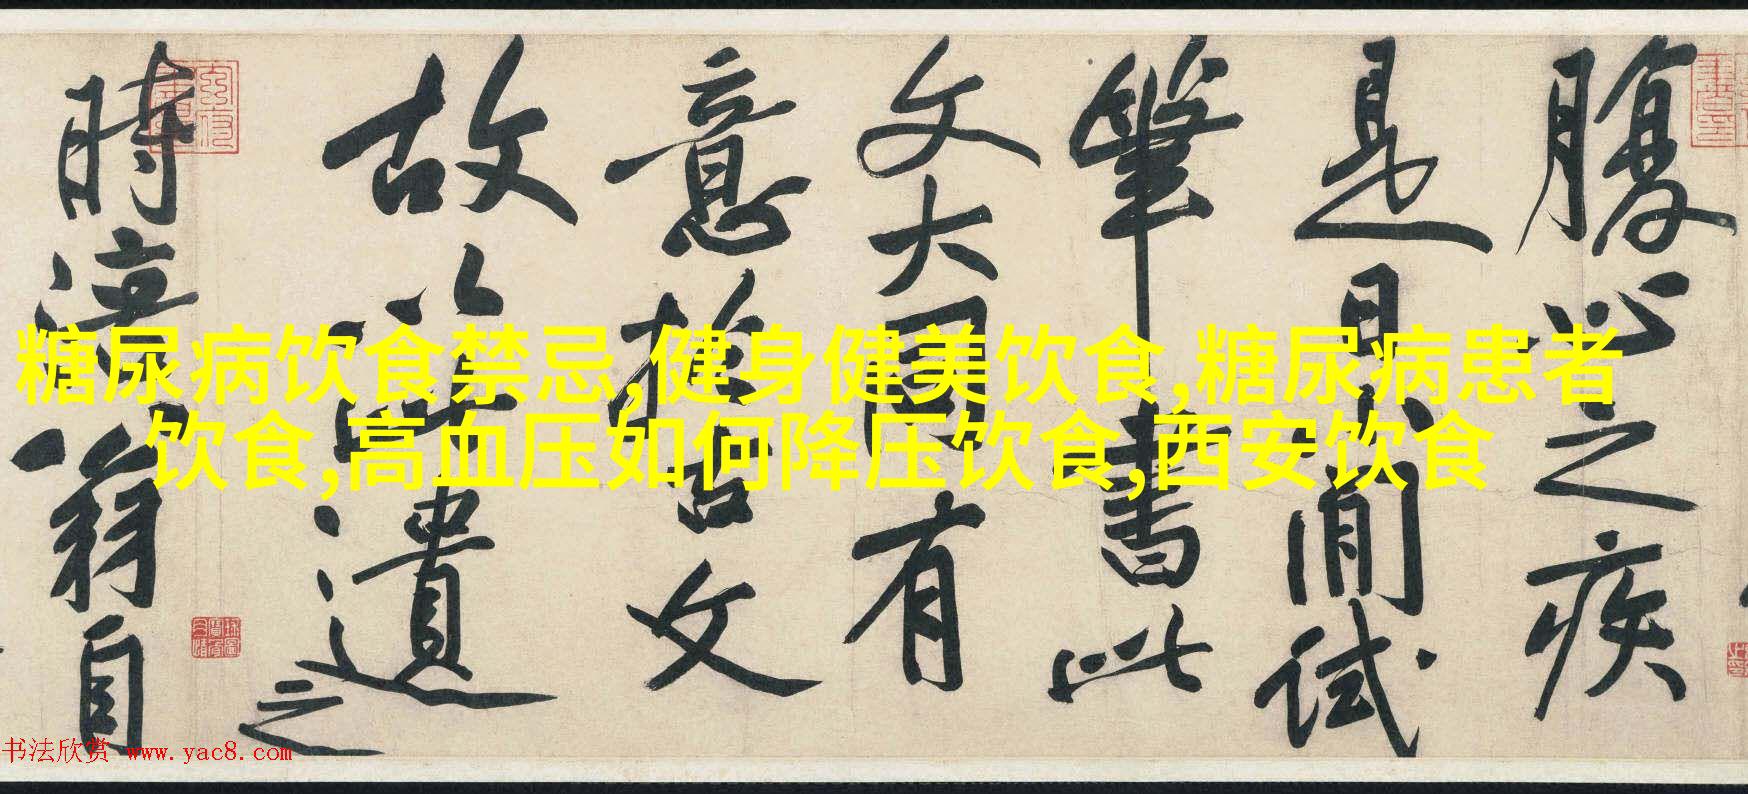 腹心之疾
是日小閒試
筆書此
文大同有
意於古文
故以此遺之
時涪翁自
糖尿病饮食禁忌,健身健美饮食,糖尿病患者
饮食,高血压如何降压饮食,西安饮食
书法欣赏 www.yac8.com